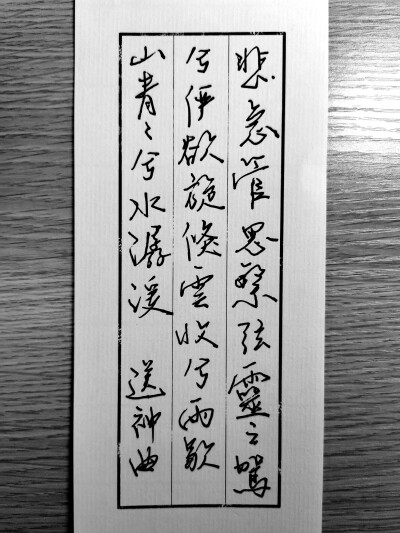 悲急管思繁弦靈之駕
兮俨欲旋倏雲收兮雨歇
山青〻兮水潺湲 送神曲